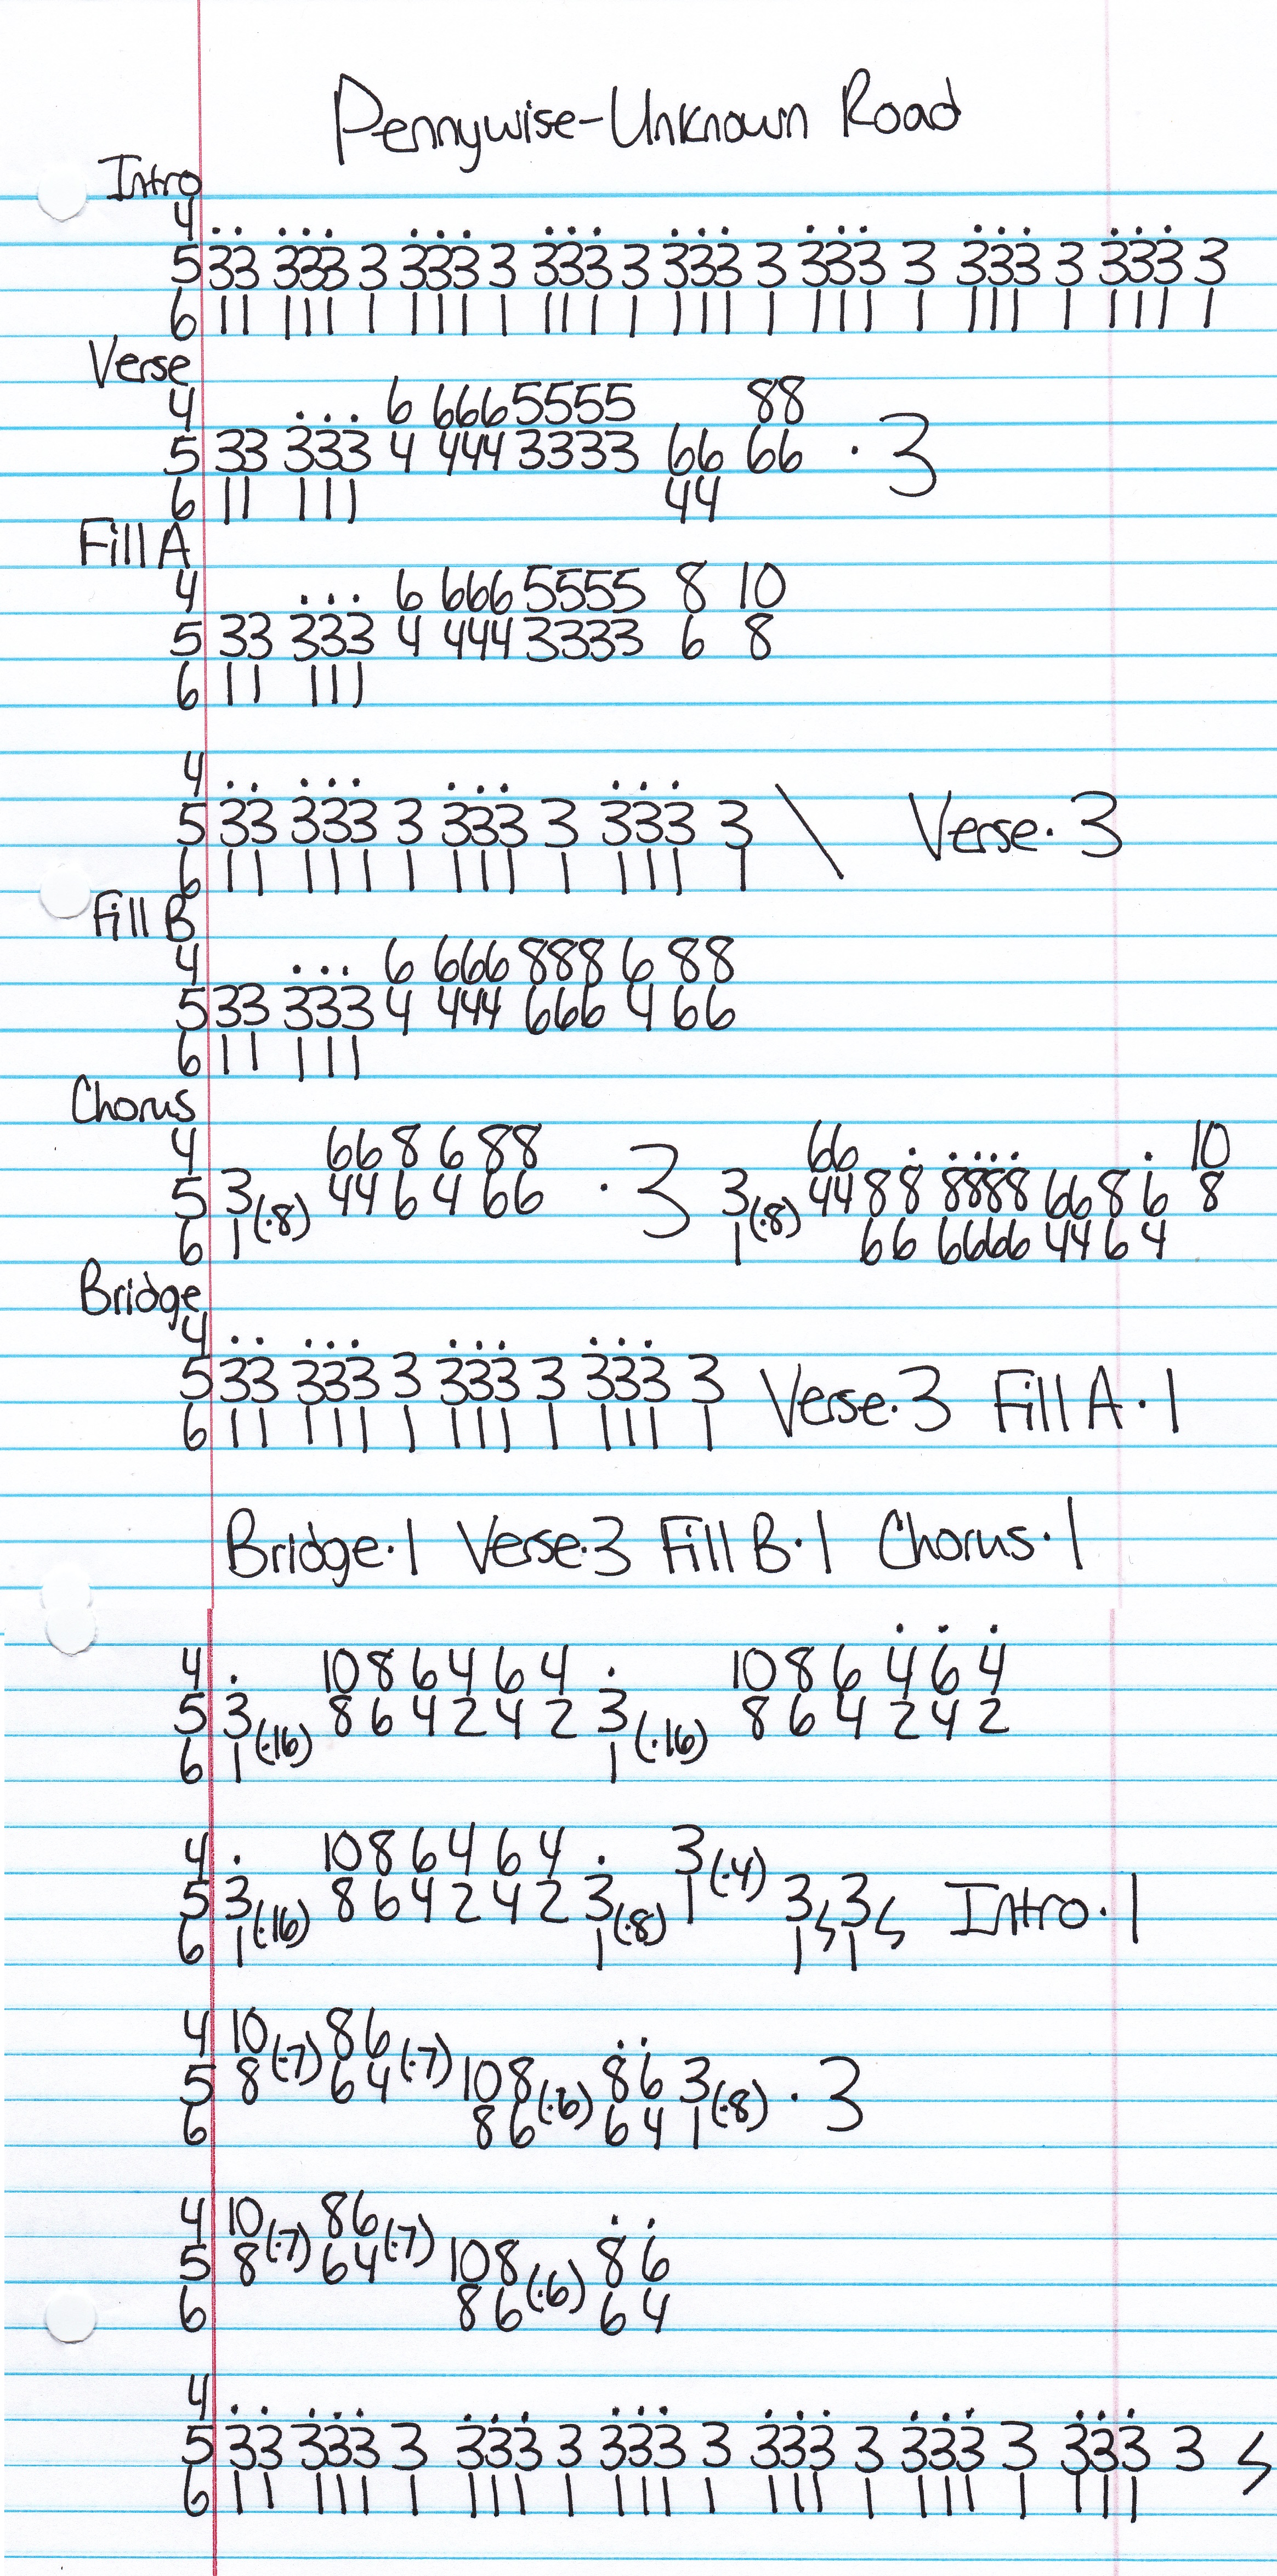 Pennywise-Unknown Road
Intro
4 .. ... ... ... ... ... ... ...
5 33 333 3 333 3 333 3 333 3 333 3 333 3 333 3
6 11 111 1 111 1 111 1 111 1 111 1 111 1 111 1
Verse
4 ... 6 666 5555 88
5 33 333 4 444 3333 66 66 · 3
6 11 111 44
Fill A
4 ... 6 666 5555 8 10
5 33 333 4 444 3333 6 8
6 11 111
4 .. ... ... ...
5 33 333 3 333 3 333 3 \ Verse · 3
6 11 111 1 111 1 111 1
Fill B
4 ... 6 666 888 6 88
5 33 333 4 444 666 4 66
6 11 111
Chorus
4 66 8 6 88 66 . .... . 10
5 3 (·8) 44 6 4 66 · 3 3 (·8) 44 8 8 8888 66 8 6 8
6 1 1 66 6666 44 6 4
Bridge
4 .. ... ... ...
5 33 333 3 333 3 333 3 Verse · 3 Fill A · 1
6 11 111 1 111 1 111 1
Bridge · 1 Verse · 3 Fill B · 1 Chorus · 1
4 . 10 8 6 4 6 4 . 10 8 6 4 6 4
5 3 (·16) 8 6 4 2 4 2 3 (·16) 8 6 4 2 4 2
6 1 1
4 . 10 8 6 4 6 4 . 3 (·4)
5 3 (·16) 8 6 4 2 4 2 3 (·8) 1 3 3 Intro · 1
6 1 1 1 1
4 10 (·7) 86 (·7) ..
5 8 64 108 (·6) 86 3 (·8) · 3
6 86 64 1
4 10 (·7) 86 (·7) ..
5 8 64 108 (·6) 86
6 86 64
4 .. ... ... ... ... ... ...
5 33 333 3 333 3 333 3 333 3 333 3 333 3
6 11 111 1 111 1 111 1 111 1 111 1 111